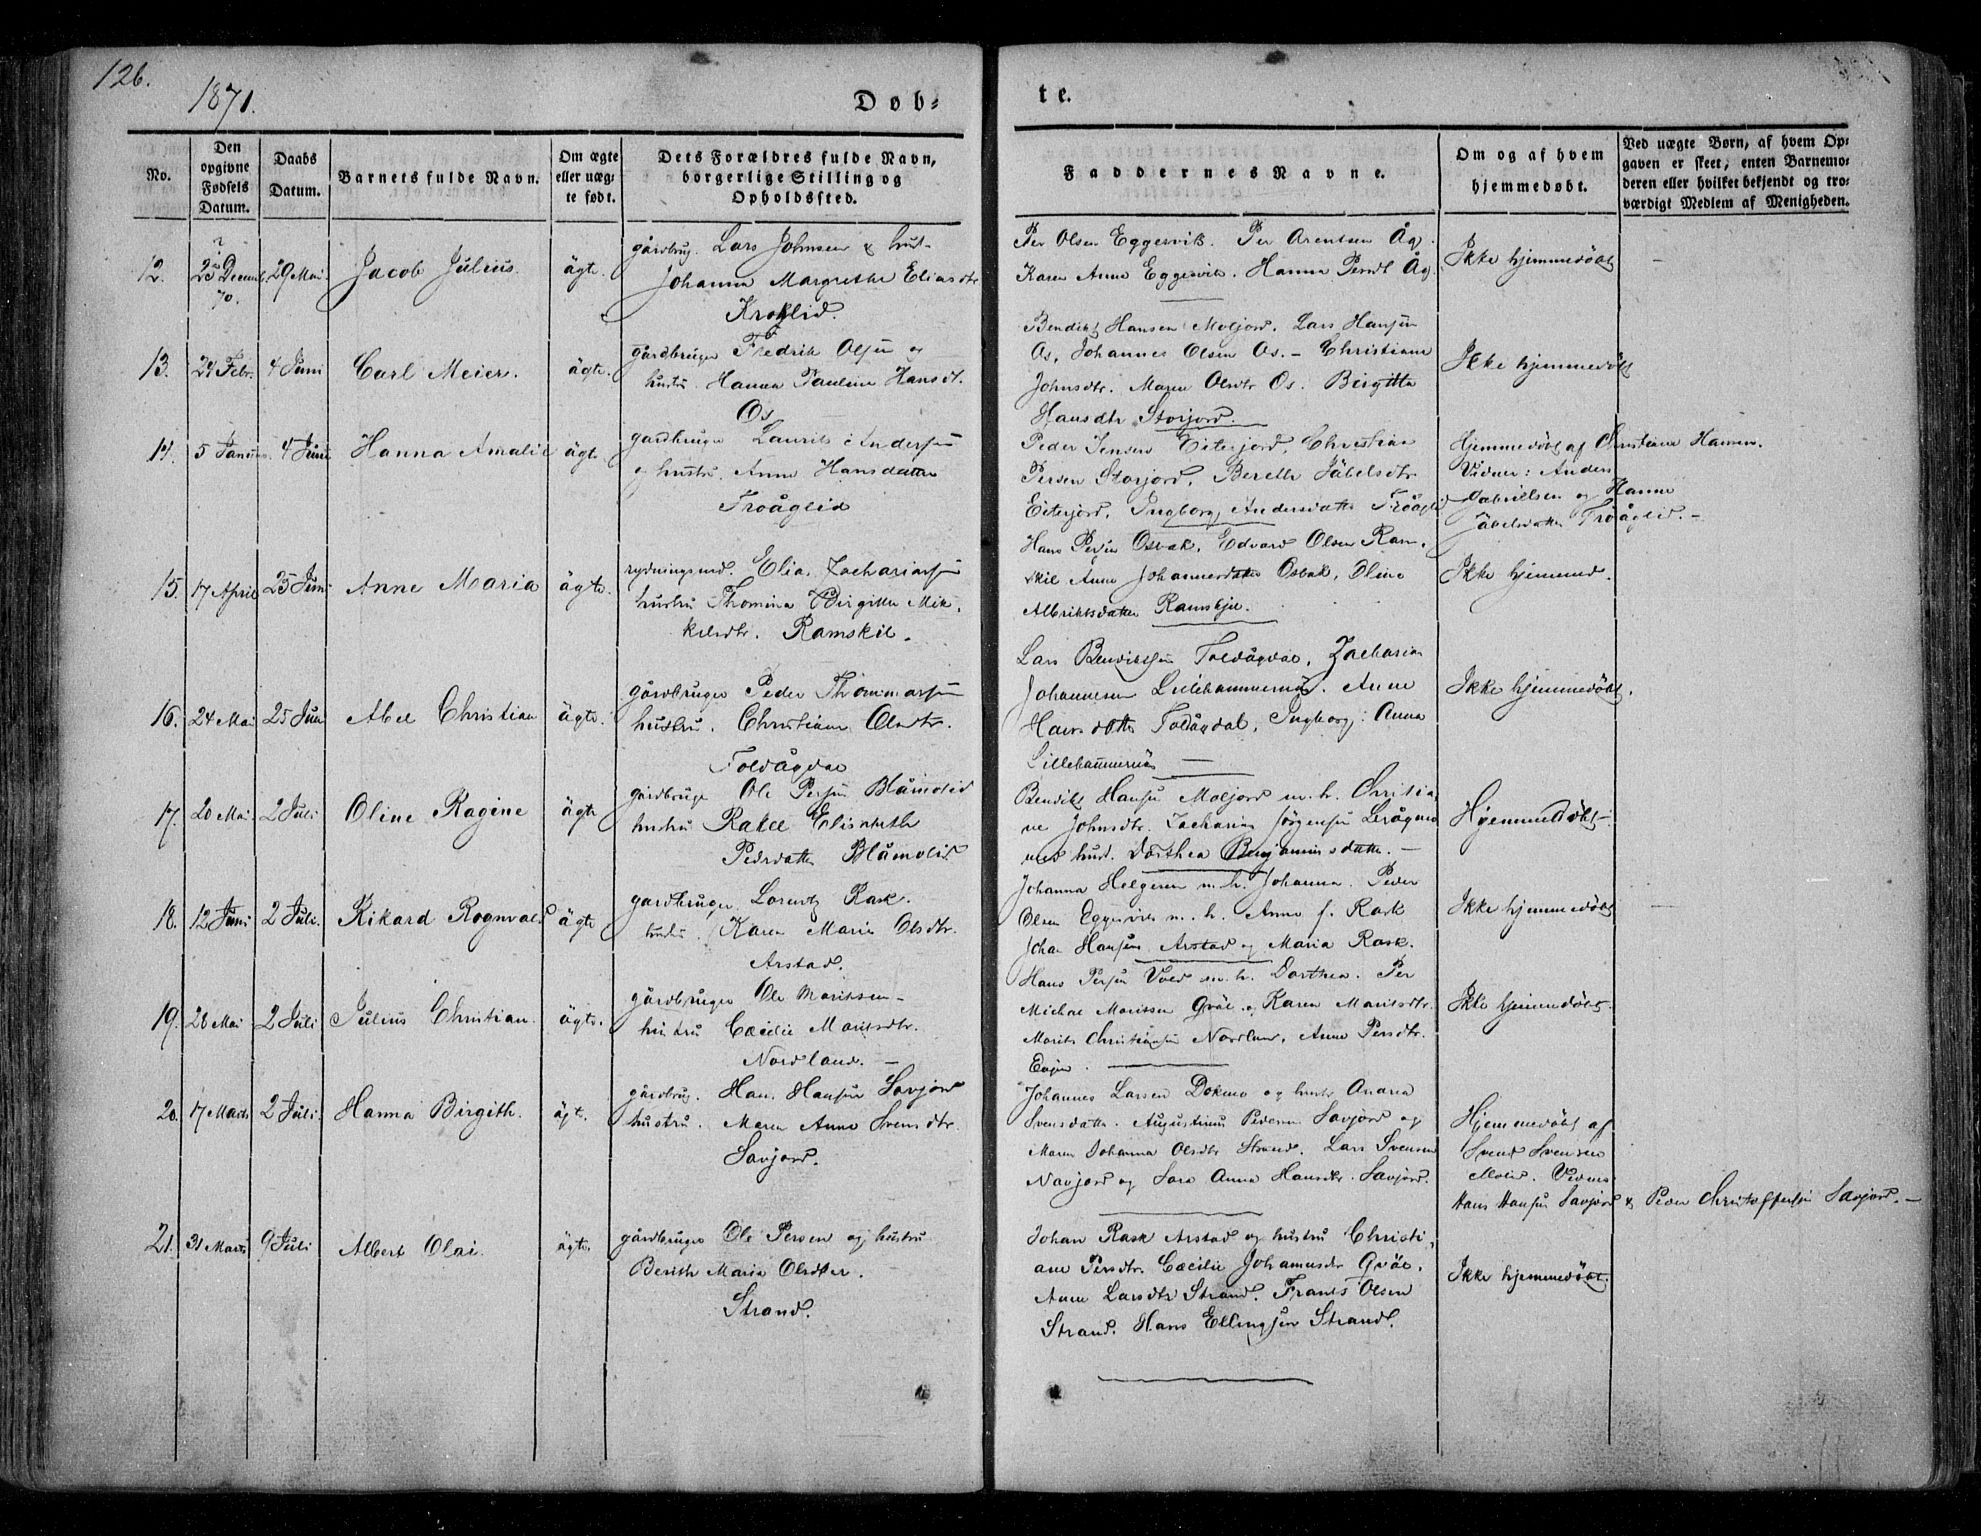 126.
1871.
Døb-
te.
No.
Den
opgivne
Fødsels
Datum.
Daabs
Datum.
Barnets fulde Navn.
Om ægte
eller uæg-
te født.
Dets Forældres fulde Navn,
borgerlige Stilling og
Opholdssted.
Faddernes Navne.
Om og af hvem
hjemmedøbt.
Ved uægte Børn, af hvem Op-
gaven er skeet, enten Barnemo-
deren eller hvilket bekjendt og tro-
værdigt Medlem af Menigheden.
12.
Decemb.
70.
29 Mai
Jacob Julius.
ägte.
gårdbrug. Lars Johnsen & hust-
Johanna Margrethe Eliasdtr
Kroklid.
Per Olsen Eggesvik. Per Arentsen Åg.
Karen Anne Eggesvik. Hanna Persdt Åg.
Ikke hjemmedöbt
13.
24 Febr.
4 Juni
Carl Meier.
ägte.
gårdbruger Fredrik Olsen og
hustru Hanna Pauline Hansdt.
Os
Bendikt Hansen Moljord. Lars Hansen
Os, Johannes Olsen Os. - Christiane
Johnsdtr. Maren Olsdtr Os. Birgitte
Hansdtr Storjord.
Ikke hjemmedöbt
14.
5 Januar
4 Juni
Hanna Amalie
ägte
gardbruger Laurits Andersen
og hustru. Anne Hansdatter
Troåglid
Peder Jensen Eiterjord, Christian
Persen Storjord, Berethe Jäbelsdtr.
Eiterjord, Ingborg Andersdatter Troåglid
Hjemmedöbt af Christiane Hansen.
Vidner: Anders
Gabrielsen og Hanne
Jäbelsdatter Troåglid. -
15.
17 April
25 Juni
Anne Maria
ägte.
rydningsmd. Elias Zachariassen
hustru Thomina Birgitte Mik-
kelsdtr. Ramskil.
Hans Persen Osbak, Edvard Olsen Ram-
skil Anne Johannesdatter Osbak, Oline
Albriktsdatter Ramskjel.
Ikke hjemmed.
16.
24 Mai
25 Juni
Abel Christian
ägte.
gårdbruger Peder Thommassen
hustru. Christiane Olsdtr.
Toldågdal
Lars Bendiktsen Toldågdal, Zacharias
Johannesen Lillehammernäs. Anne
Hansdatter Toldågdal, Ingborg Anna
Lillehammernäs
Ikke hjemmedöbt.
17.
20 Mai
2 Juli
Oline Ragine
ägte
gårdbruger Ole Persen Blåmolid
hustru Rakel Elisabeth
Pedersdatter Blåmolid
Bendikt Hansen Moljord m. h. Christia-
ne Johnsdtr. Zacharias Jörgensen Leiråmo
med hust. Dorthea Benjaminsdatter. -
Hjemmedöbt
18.
12 Juni
2 Juli.
Rikard Rognvald
ägte
gardbruger Lorentz Rask.
hustru. Karen Marie Olsdtr.
Arstad.
Johanna Helgesen m. h. Johanna. Peder
Olsen Eggesvik m. h. Anne f. Rask
Johan Hansen Arstad og Maria Rask.
Ikke hjemmedöbt
19.
28 Mai
2 Juli
Julius Christian.
ägte.
gårdbruger Ole Moritsen -
hustru Cæcilie Moritsdtr.
Nordland. -
Hans Persen Vold m. h. Dorthea. Per
Michal Moritsen Qväl og Karen Moritsdtr.
Morits Christiansen Nordland, Anne Persdtr.
Evjen.
Ikke hjemmedöbt.
20.
17 Marts
2 Juli.
Hanna Birgith.
ägt.
gårdbrug. Hans Hansen Savjord
hustru. Maren Anne Svensdtr.
Savjord.
Johannes Larsen Dokmo og hustr. Anana
Svensdatter. Augustinus Pedersen Savjord og
Maren Johanna Olsdtr Strand. Lars Svensen
Navjord og Sara Anna Hansdtr. Savjord.
Hjemmedöbt af
Svend Svensen
Molid. Vidners
Hans Hansen Savjord & Peder Christoffersen Savjord. -
21.
31 Marts
9 Juli
Albert Olai.
ägte.
gårdbruger Ole Persen og hustru
Berith Maria Olsdter.
Strand.
Johan Rask Arstad og hustru Christi-
ane Persdtr. Cæcilie Johannesdtr Qväl.
Anne Larsdtr Strand. Frants Olsen
Strand. Hans Ellingsen Strand.
Ikke hjemmedöbt.